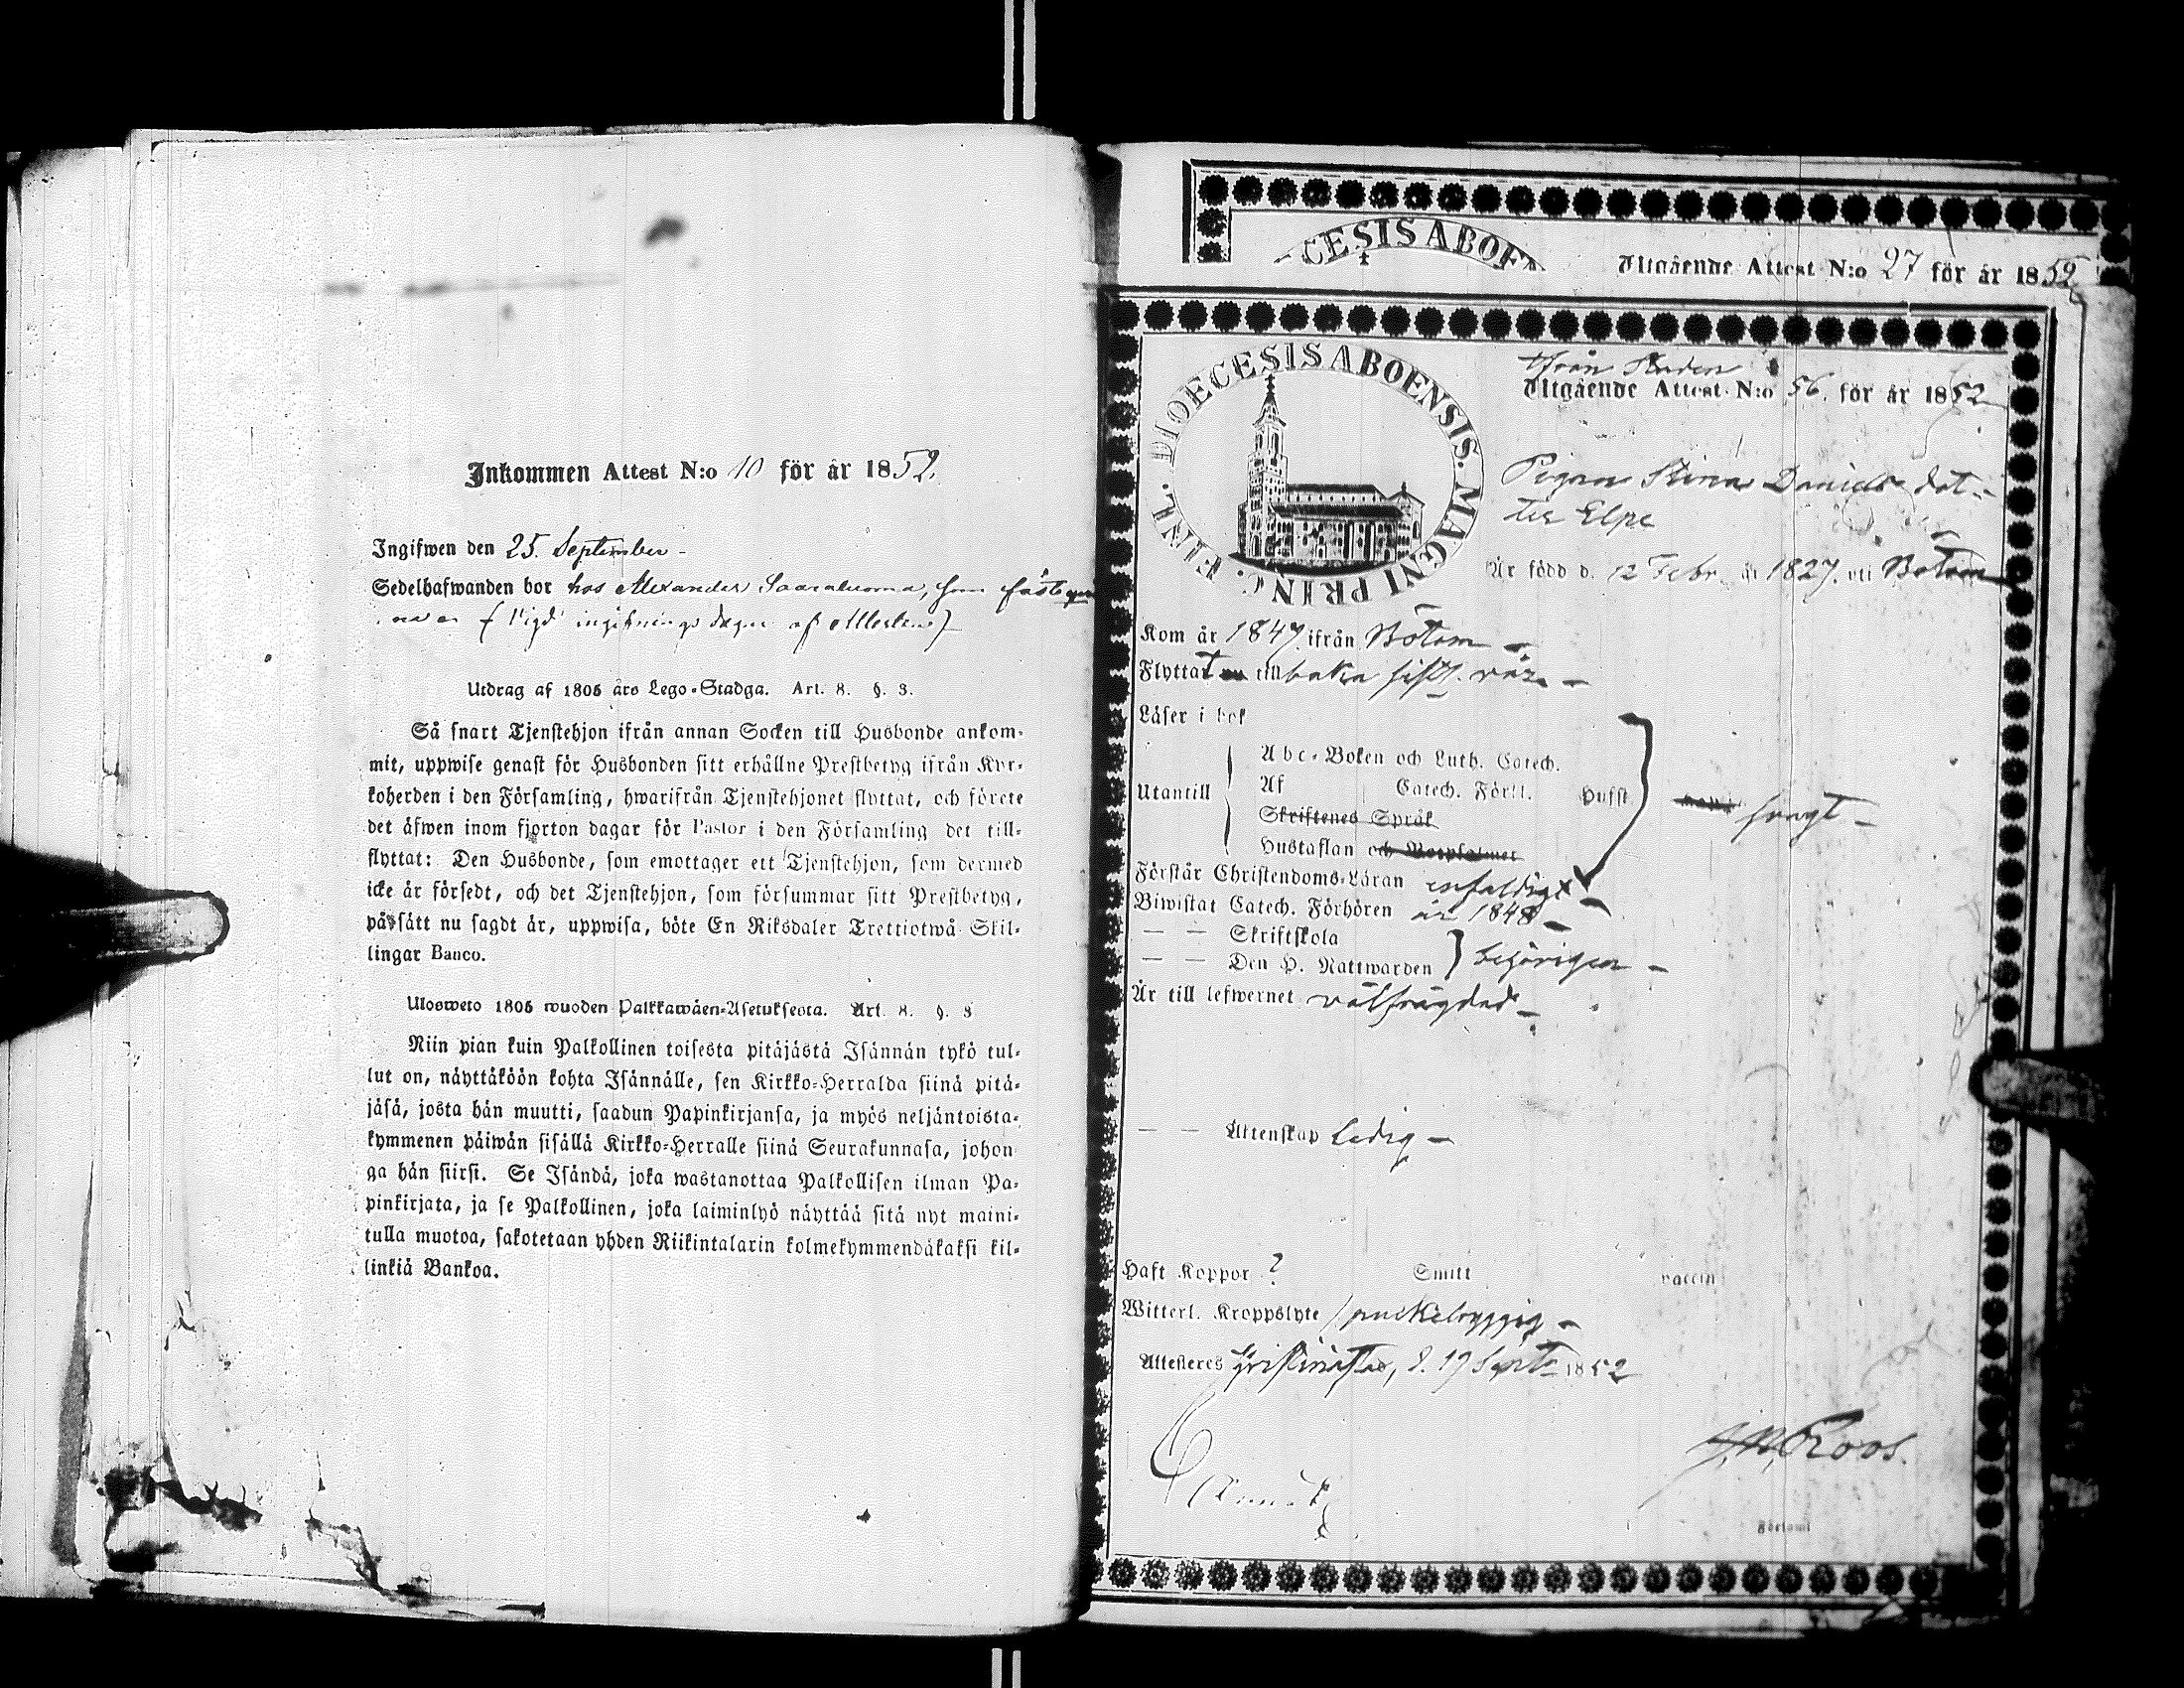 Inkommen Attest N:o 10 för år 1852.
Ingifwen den 25. September -
Sedelhafwanden bor hos Alexander Saaraluoma, som
ingifnings dagen af Attesten)
Utdrag af 1805 års Lego-Stadga. Art. 8. §. 3.
Så snart Tjenstehjon ifrån annan Socken till Husbonde ankom-
mit, uppwise genast för Husbonden sitt erhållne Prestbetyg ifrån Kyr-
koherden i den Församling, hwarifrån Tjenstehjonet flyttat, och förete
det äfwen inom fjorton dagar för Pastor i den Församling det till-
flyttat: Den Husbonde, som emottager ett Tjenstehjon, som dermed
icke är försedt, och det Tjenstehjon, som försummar sitt Prestbetyg,
påsätt nu sagdt är, uppwisa, böte En Riksdaler Trettiotwå Skil-
lingar Banco.
Ulosweto 1805 wuoden Palkkawäen-Asetuksesta. Art. 8. §. 3
Niin pian kuin Palkollinen toisesta pitäjästä Isännän tykö tul-
lut on, näyttäköön kohta Isännälle, sen Kirkko-Herralda siinä pitä-
jäsä, josta hän muutti, saadun Papinkirjansa, ja myös neljäntoista-
kymmenen päiwän sisällä Kirkko-Herralle siinä Seurakunnasa, johon
ga hän siirsi. Se Isändä, joka wastanottaa Palkollisen ilman Pa-
pinkirjata, ja se Palkollinen, joka laiminlyö näyttää sitä nyt maini-
tulla muotoa, sakotetaan yhden Riikintalarin kolmekymmendäkaksi kil-
linkiä Bankoa.
CESIS ABOE
Utgående Attest N:o 27 för år 1852
DIOECESIS ABOENSIS. MAGNI PRINC. FINL.
ifrån Staden
Utgående Attest N:o 56. för år 1852
Pigan Stina Daniels dot-
ter Elpe
Är född d. 12 Febr. år 1827. uti Bötom
Kom år 1847 ifrån Bötom -
Flyttat tillbaka sistl. vår -
Läser i bok
Utantill
Abc-Boken och Luth. Catech.
Af Catech. Förkl. Hufst.
Skriftenes Språk
Hustaflan och Botpsalmer
svagt -
Förstår Christendoms-Läran enfaldigt -
Biwistat Catech. Förhören år 1848 -
— — Skriftskola
— — Den H. Nattwarden } behörigen -
Är till lefwernet välfrägdad -
— — Äktenskap ledig -
Haft Koppor ? Smitt vaccin
Witterl. Kroppslyte puckelryggig -
Attesteres Kristinestad, d. 19 Sept. 1852
Roos.